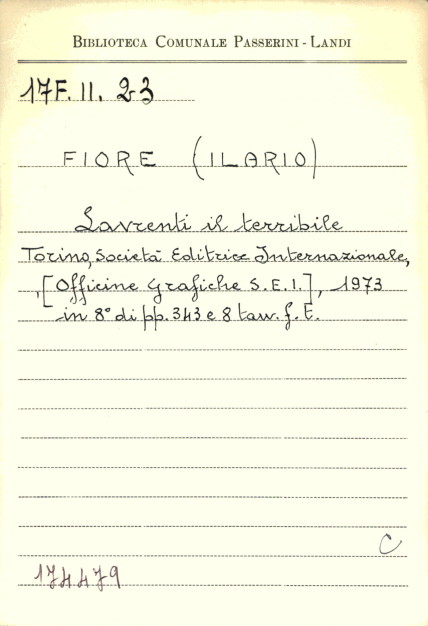 BIBLIOTECA COMUNALE PASSERINI - LANDI
17F. II. 23
FIORE (ILARIO)
Lavrenti il terribile
Torino, Società Editrice Internazionale,
, [Officine Grafiche S.E.I.], 1973
in 8° di pp. 343 e 8 tavv. f. t.
C
174479